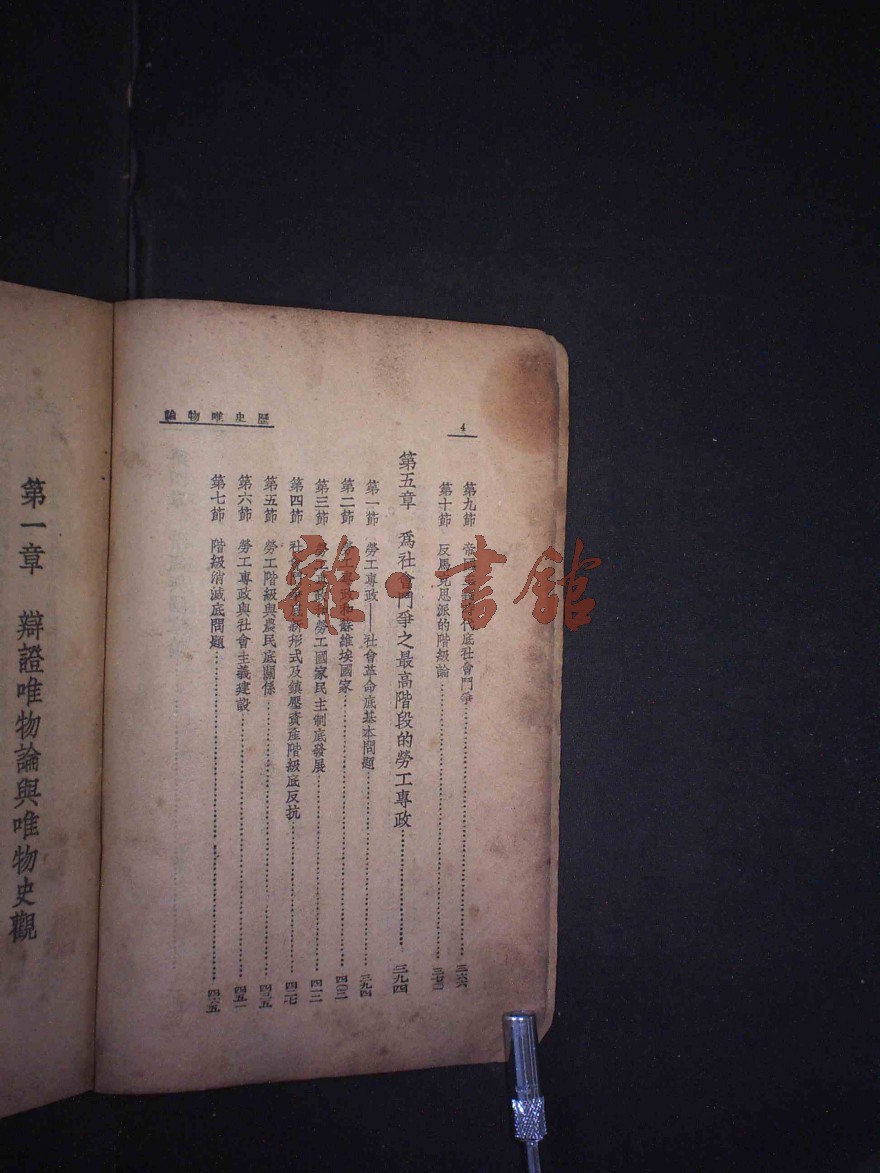 4
歷史唯物論
第九節 帝國主義時代底社會鬥爭 三六六
第十節 反馬克思派的階級論 三七二
第五章 爲社會鬥爭之最高階段的勞工專政 三九四
第一節 勞工專政——社會革命底基本問題 三九四
第二節 勞工專政和蘇維埃國家 四〇二
第三節 勞工專政和勞工國家民主制底發展 四一二
第四節 社會鬥爭底新形式及鎮壓資產階級底反抗 四二七
第五節 勞工階級與農民底關係 四三五
第六節 勞工專政與社會主義建設 四五一
第七節 階級消滅底問題 四六五
第一章 辯證唯物論與唯物史觀
雜·書館